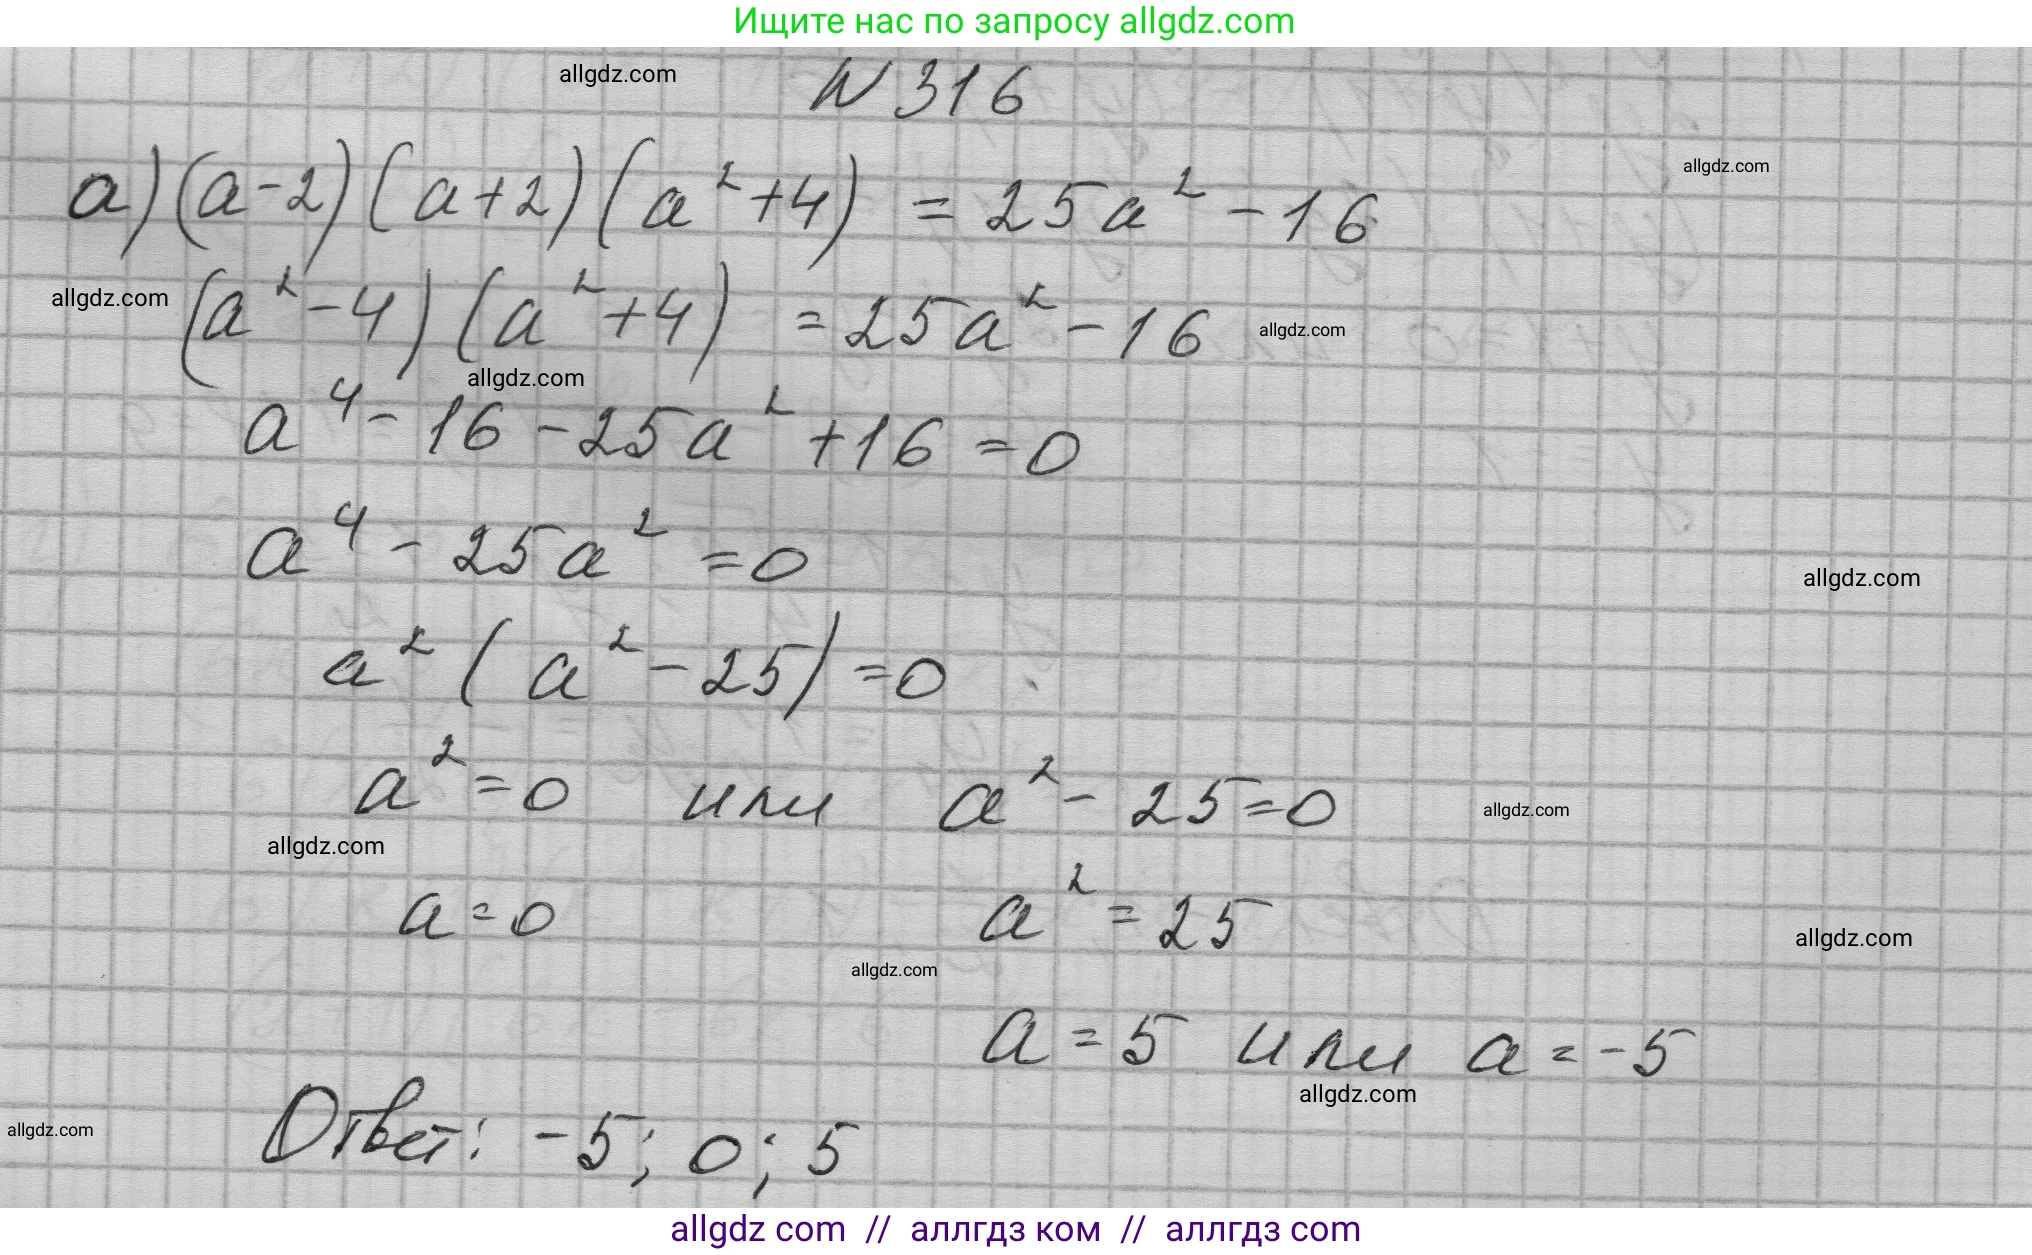 Ищите нас по запросу allgdz.com
allgdz.com
N 316
а) (a-2)(a+2)(a²+4) = 25a² - 16
allgdz.com
(a²-4)(a²+4) = 25a² - 16
allgdz.com
allgdz.com
allgdz.com
a⁴ - 16 - 25a² + 16 = 0
a⁴ - 25a² = 0
allgdz.com
a² (a² - 25) = 0
a² = 0 или a² - 25 = 0
allgdz.com
allgdz.com
a = 0 a² = 25
allgdz.com
allgdz.com
a = 5 или a = -5
allgdz.com
allgdz.com
Ответ: -5; 0; 5
allgdz com // аллгдз ком // аллгдз com